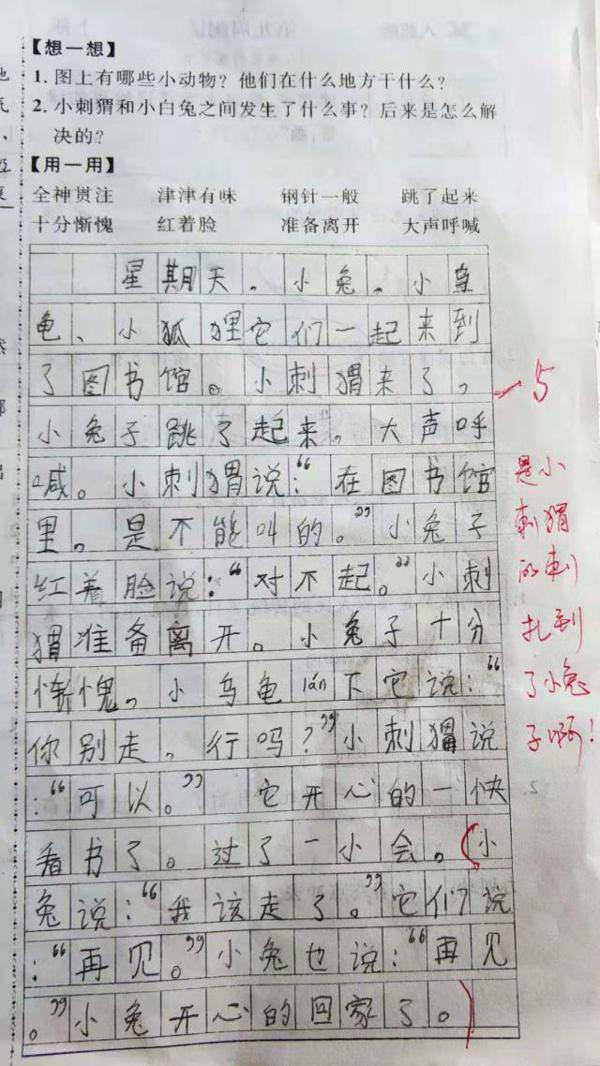 【想一想】
1. 图上有哪些小动物？他们在什么地方干什么？
2. 小刺猬和小白兔之间发生了什么事？后来是怎么解
决的？
【用一用】
全神贯注 津津有味 钢针一般 跳了起来
十分惭愧 红着脸 准备离开 大声呼喊
星期天。小兔。小乌
龟、小狐狸它们一起来到
了图书馆。小刺猬来了。
小兔子跳了起来。大声呼
喊。小刺猬说：“在图书馆
里。是不能叫的。”小兔子
红着脸说：“对不起。”小刺
猬准备离开。小兔子十分
惭愧。小乌龟lán下它说：“
你别走。行吗？”小刺猬说
：“可以。”它开心的一快
看书了。过了一小会。小
兔说：“我该走了。”它们说
：“再见。”小兔也说：“再见
。”小兔开心的回家了。
5
是小
刺猬
的刺
扎到
了小兔
子啊！